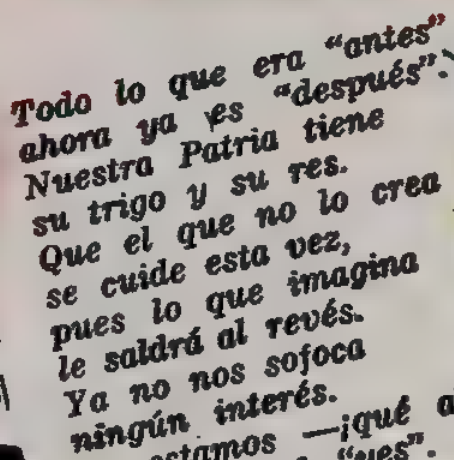 Todo lo que era “antes”
ahora ya es “después”.
Nuestra Patria tiene
su trigo y su res.
Que el que no lo crea
se cuide esta vez,
pues lo que imagina
le saldrá al revés.
Ya no nos sofoca
ningún interés.
estamos —¡qué
“yes”.